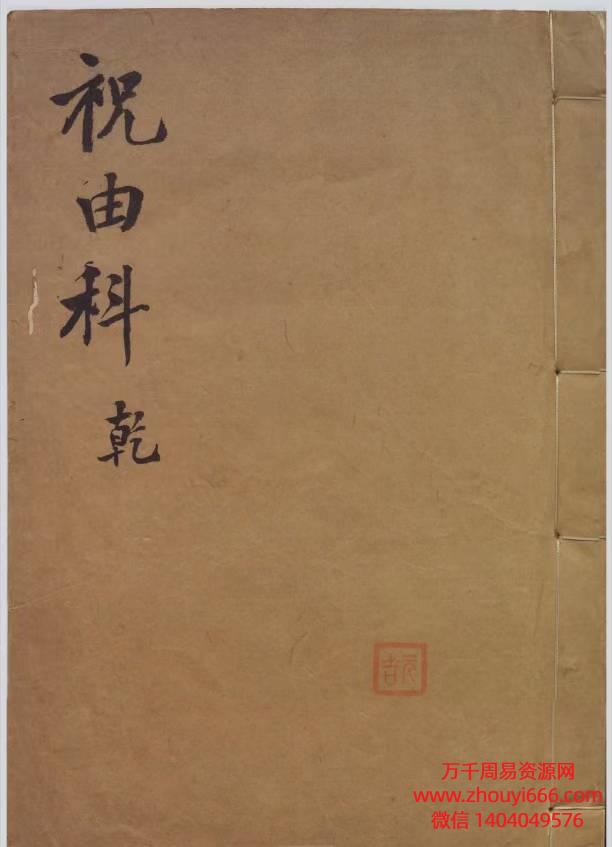 祝由科
乾
元吉
万千周易资源网
www.zhouyi666.com
微信 1404049576